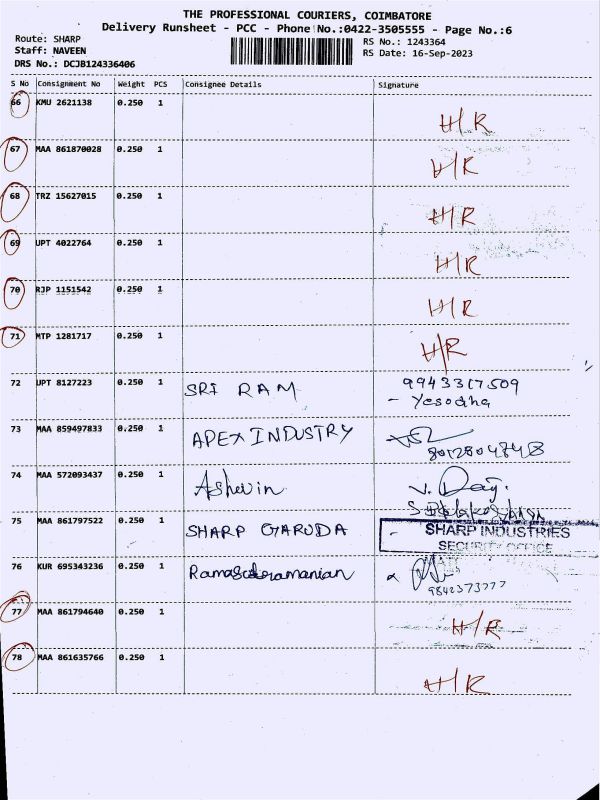 THE PROFESSIONAL COURIERS, COIMBATORE
Delivery Runsheet - PCC - Phone No.:0422-3505555 - Page No.:6
Route: SHARP
Staff: NAVEEN
DRS No.: DCJB124336406
RS No.: 1243364
RS Date: 16-Sep-2023
S No Consignment No Weight PCS Consignee Details Signature
66 KMU 2621138 0.250 1 H/R
67 MAA 861870028 0.250 1 H/R
68 TRZ 15627015 0.250 1 H/R
69 UPT 4022764 0.250 1 H/R
70 RJP 1151542 0.250 1 H/R
71 MTP 1281717 0.250 1 H/R
72 UPT 8127223 0.250 1 SRI RAM 9943317509
- Yesodha
73 MAA 859497833 0.250 1 APEX INDUSTRY
74 MAA 572093437 0.250 1 Ashwin
75 MAA 861797522 0.250 1 SHARP GARUDA - SHARP INDUSTRIES
SECURITY OFFICE
76 KUR 695343236 0.250 1 Ramasubramanian
9842373777
77 MAA 861794640 0.250 1 H/R
78 MAA 861635766 0.250 1 H/R